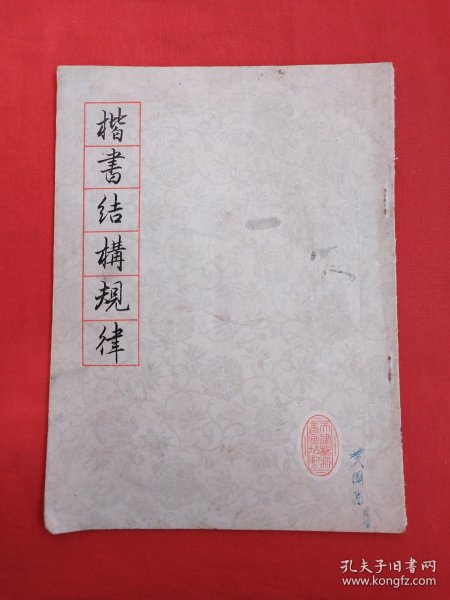 楷書结構規律
黄國
孔夫子旧书网
www.kongfz.com